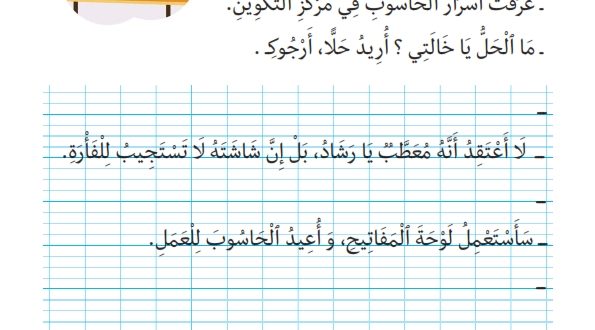 ـ عَرَفْتُ أَسْرَارَ الْحَاسُوبِ فِي مَرْكَزِ التَّكْوِينِ.
ـ مَا ٱلْحَلُّ يَا خَالَتِي ؟ أُرِيدُ حَلًّا، أَرْجُوكِـ .
ـ
ـ لَا أَعْتَقِدُ أَنَّهُ مُعَطَّبٌ يَا رَشَادُ، بَلْ إِنَّ شَاشَتَهُ لَا تَسْتَجِيبُ لِلْفَأْرَةِ.
ـ
ـ سَأَسْتَعْمِلُ لَوْحَةَ ٱلْمَفَاتِيحِ، وَ أُعِيدُ ٱلْحَاسُوبَ لِلْعَمَلِ.
ـ